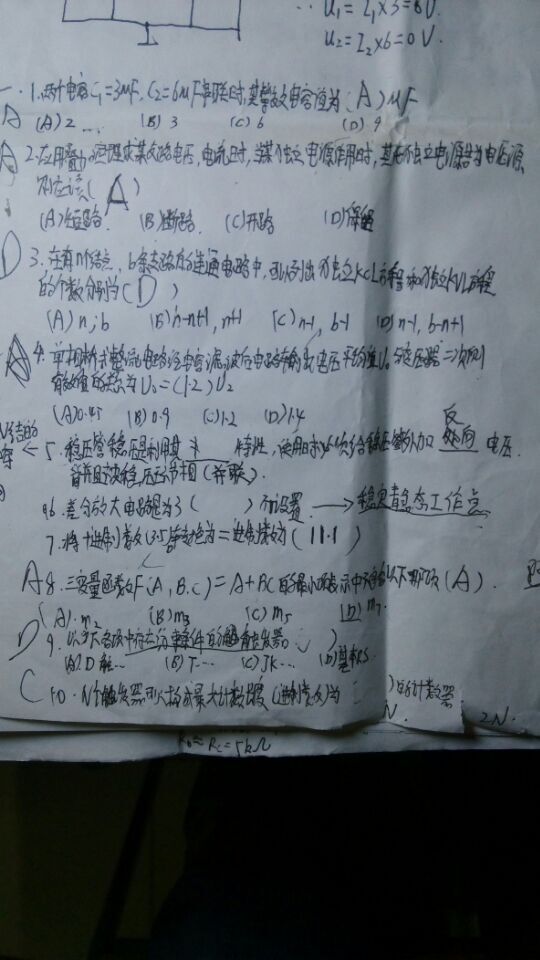 U₁=I₁×3=6V.
U₂=I₂×6=0V.
一.1.两个电容C₁=3μF,C₂=6μF串联时,其等效电容值为(A)μF
A (A)2 ... (B)3 (C)6 (D)9
A 2.在应用叠加原理求某支路电压,电流时,当某个独立电源作用时,其他不独立电源若为电压源
则应该(A)
(A)短路. (B)断路. (C)开路 (D)保留
D 3.在有n个结点,b条支路的连通电路中,可以列出独立KCL方程和独立KVL方程
的个数分别为(D)
(A)n,b (B)n-n+1,n+1 (C)n-1,b-1 (D)n-1,b-n+1
4.单相桥式整流电路经电容滤波后电路输出电压平均值U₀与变压器二次侧
有效值的关系为U₀=(1.2)U₂
(A)0.45 (B)0.9 (C)1.2 (D)1.4
5.稳压管稳压是利用其 特性,使用时必须给稳压管外加 反向 电压.
(并联).
6.差分放大电路是为3( )而设置 → 稳定静态工作点
7.将十进制数(3.5)转换为二进制数为(11.1)
A 8.三变量函数F(A,B,C)=A+BC的最小项表示中不含以下哪项(A).
(A).m₂ (B)m₃ (C)m₅ (D)m₇.
D 9.以下各项中存在约束条件的触发器( )
(A)D触... (B)T... (C)JK... (D)基本RS.
C 10.N个触发器可以构成最大计数长度(进制数)为 )的计数器
N. 2N.
R_c=5kΩ